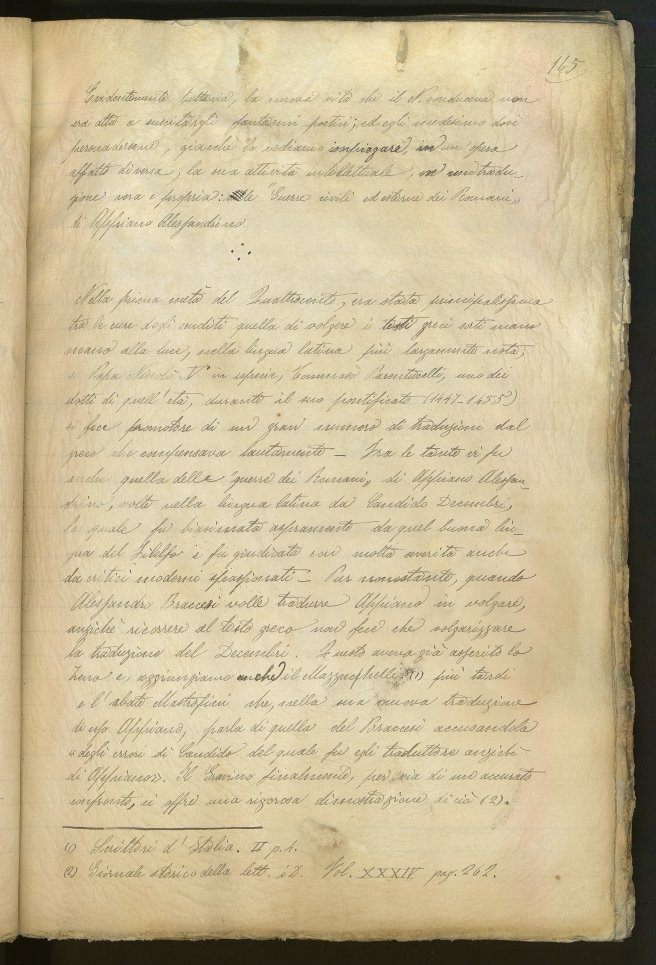 165
Evidentemente tuttavia, la nuova vita che il N. conduceva non
era atta a suscitargli fantasmi poetici; ed egli medesimo dové
persuadersene, giacché lo vediamo impiegare, in un' opera
affatto diversa, la sua attività intellettuale, in una tradu-
zione vera e propria: delle "Guerre civili ed esterne dei Romani"
di Appiano Alessandrino
Nella prima metà del Quattrocento, era stata principalissima
tra le cure degli eruditi quella di volgere i testi greci sorti mano
mano alla luce, nella lingua latina più largamente nota,
e Papa Nicolò V° in ispecie, Tommaso Parentucelli, uno dei
dotti di quell'età, durante il suo pontificato (1447-1455)
si fece promotore di un gran numero di traduzioni dal
greco che compensava lautamente – Tra le tante vi fu
anche quella delle "guerre dei Romani" di Appiano Alessan-
drino, volte nella lingua latina da Candido Decembri,
la quale fu biasimata aspramente da quel buona lin-
gua del Filelfo e fu giudicata con molta severità anche
da critici moderni spassionati – Pur nonostante, quando
Alessandro Braccesi volle tradurre Appiano in volgare,
anziché ricorrere al testo greco non fece che volgarizzare
la traduzione del Decembri. Questo aveva già asserito lo
Zeno e, aggiungiamo anche il Mazzuchelli (1) più tardi
e l'abate Mastrofini che, nella sua nuova traduzione
di esso Appiano, parla di quella del Braccesi accusandola
« degli errori di Candido del quale fu egli traduttore anziché
di Appiano». Il Gravino finalmente, per via di un accurato
confronto, ci offre una rigorosa dimostrazione di ciò (2).
(1) Scrittori d'Italia. II p. 4.
(2) Giornale storico della lett. it. Vol. XXXIV pag. 262.